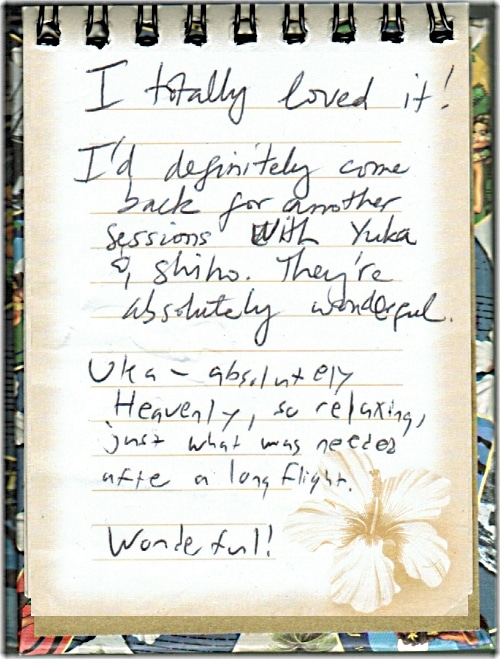 I totally loved it!
I'd definitely come
back for another
sessions with Yuka
& Shiho. They're
absolutely wonderful.
Uka - absolutely
Heavenly, so relaxing,
just what was needed
after a long flight.
Wonderful!